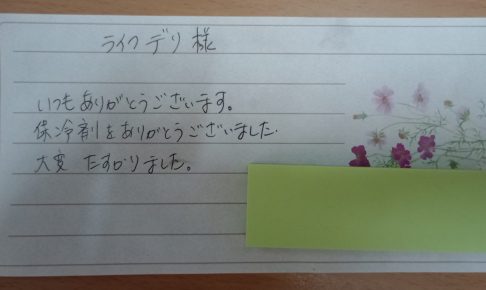 ライフデリ様
いつもありがとうございます。
保冷剤をありがとうございました。
大変 たすかりました。